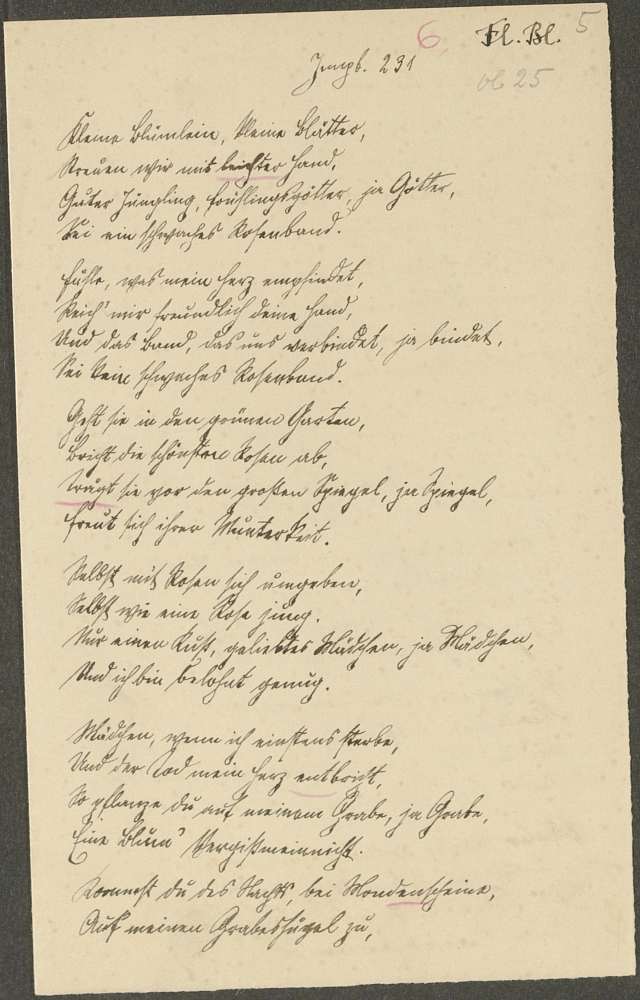 6.
Fl. Bl. 5
231
ob 25
Kleine Blümlein, kleine Blätter,
Streuen wir mit leichter Hand,
Guter Jüngling, Frühlingsgötter, ja Götter,
Sei ein schwaches Rosenband.
Fühle, was mein Herz empfindet,
Reich' mir freundlich deine Hand,
Und das Band, das uns verbindet, ja bindet,
Sei kein schwaches Rosenband.
Geht sie in den grünen Garten,
Bricht die schönsten Rosen ab,
Trägt sie vor den großen Spiegel, ja Spiegel,
Freut sich ihrer Munterkeit.
Selbst mit Rosen sich umgeben,
Selbst wie eine Rose jung.
Nur einen Kuß, geliebtes Mädchen, ja Mädchen,
Und ich bin belohnt genug.
Mädchen, wenn ich einstens sterbe,
Und der Tod mein Herz entbricht,
So pflanze du auf meinem Grabe, ja Grabe,
Eine Blum' Vergißmeinnicht.
Kommst du des Nachts, bei Mondenscheine,
Auf meinen Grabeshügel zu,